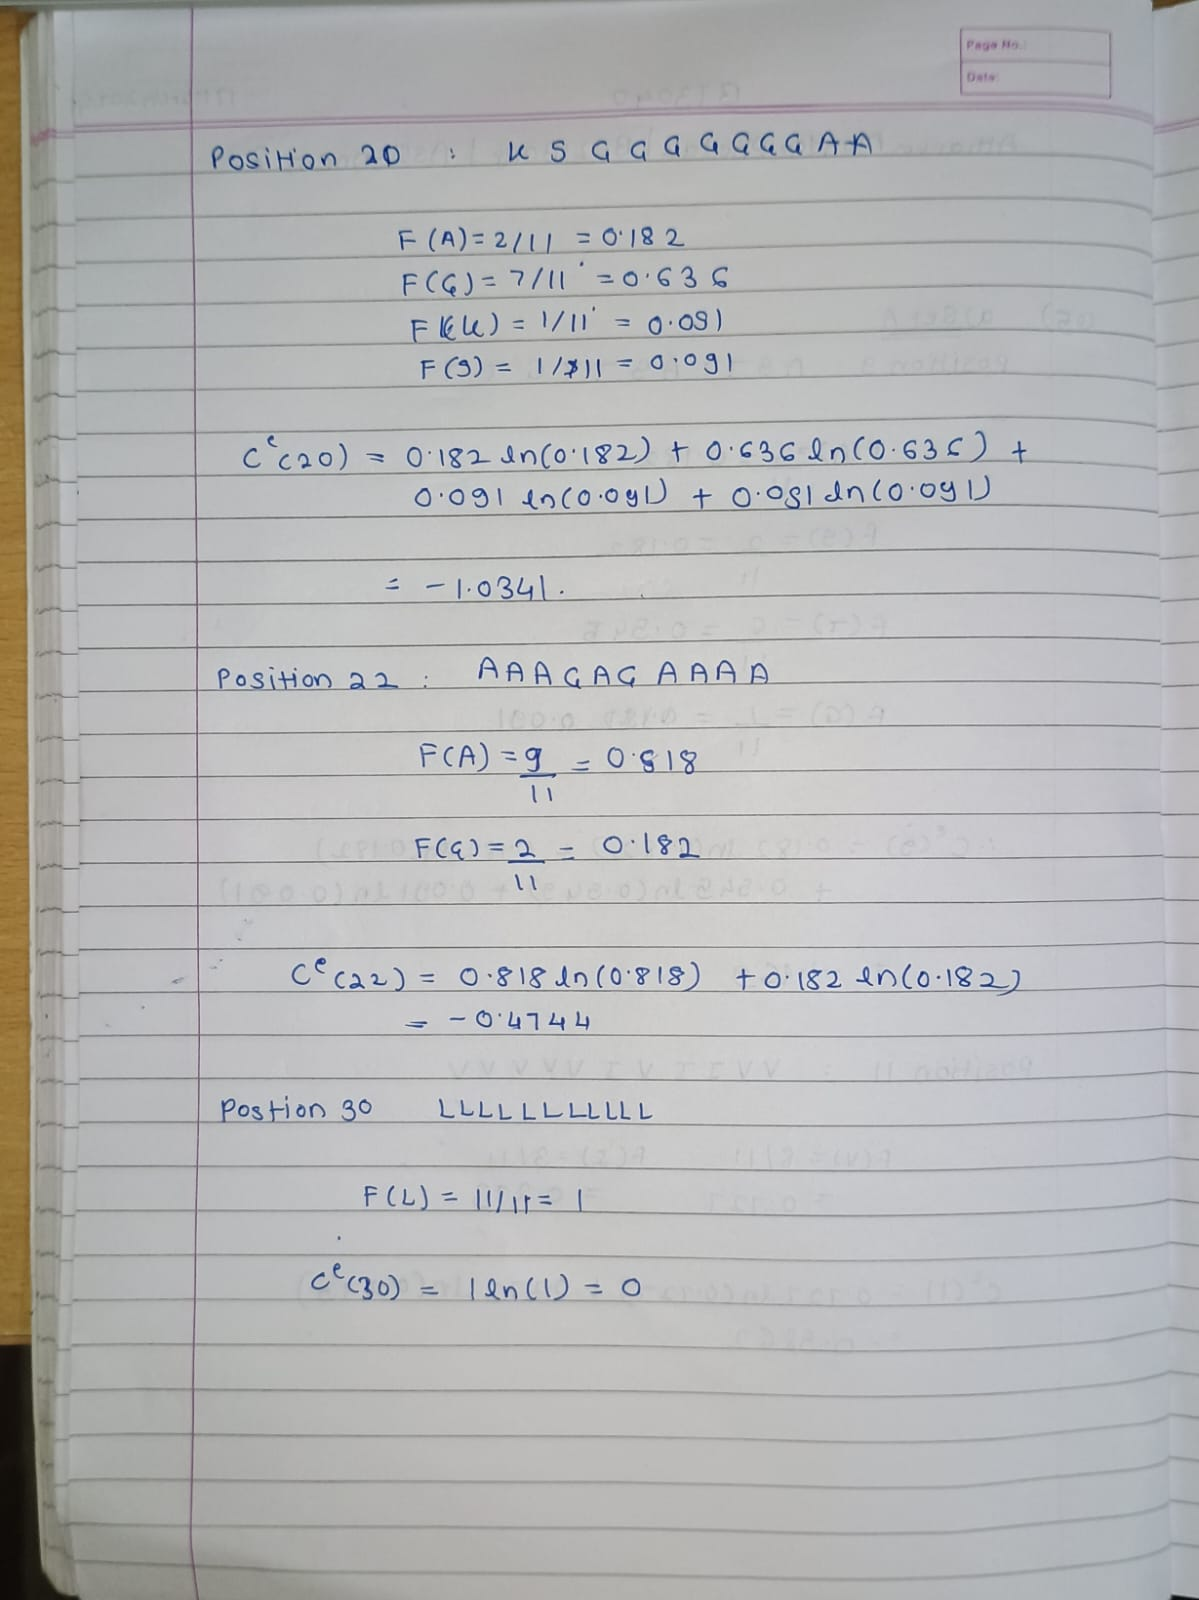 Page No.:
Date:
Position 20 : K S G G G G G G G A A
F(A) = 2/11 = 0.182
F(G) = 7/11 = 0.636
F(K) = 1/11 = 0.091
F(S) = 1/11 = 0.091
C^e(20) = 0.182 ln(0.182) + 0.636 ln(0.636) +
0.091 ln(0.091) + 0.091 ln(0.091)
= -1.0341.
Position 22 : AAAGAG AAAA
F(A) = 9/11 = 0.818
F(G) = 2/11 = 0.182
C^e(22) = 0.818 ln(0.818) + 0.182 ln(0.182)
= -0.4744
Postion 30 LLLLLLLLLLL
F(L) = 11/11 = 1
C^e(30) = 1 ln(1) = 0